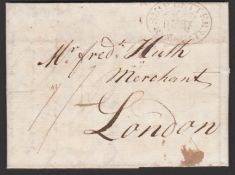 Mr. fredk. Huth
Merchant
London